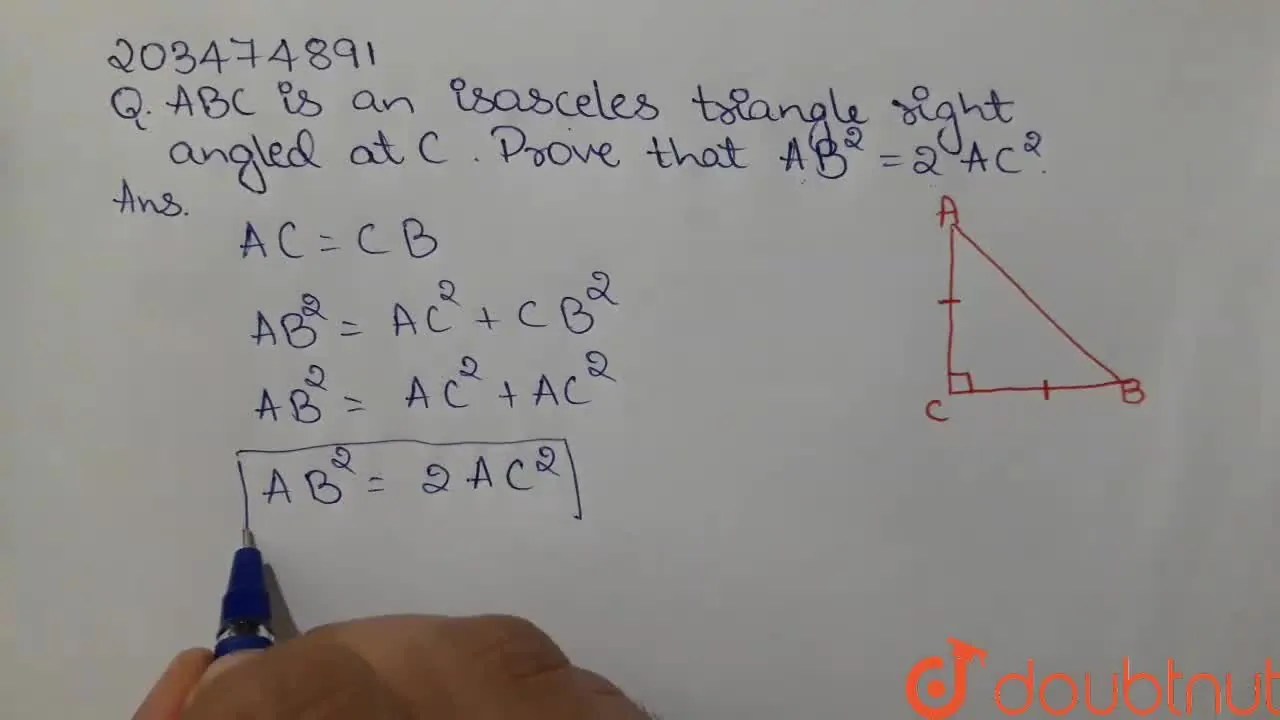 203474891
Q. ABC is an isasceles triangle right
angled at C. Prove that AB² = 2 AC².
Ans.
AC = CB
AB² = AC² + CB²
AB² = AC² + AC²
AB² = 2 AC²
A
C
B
doubtnut